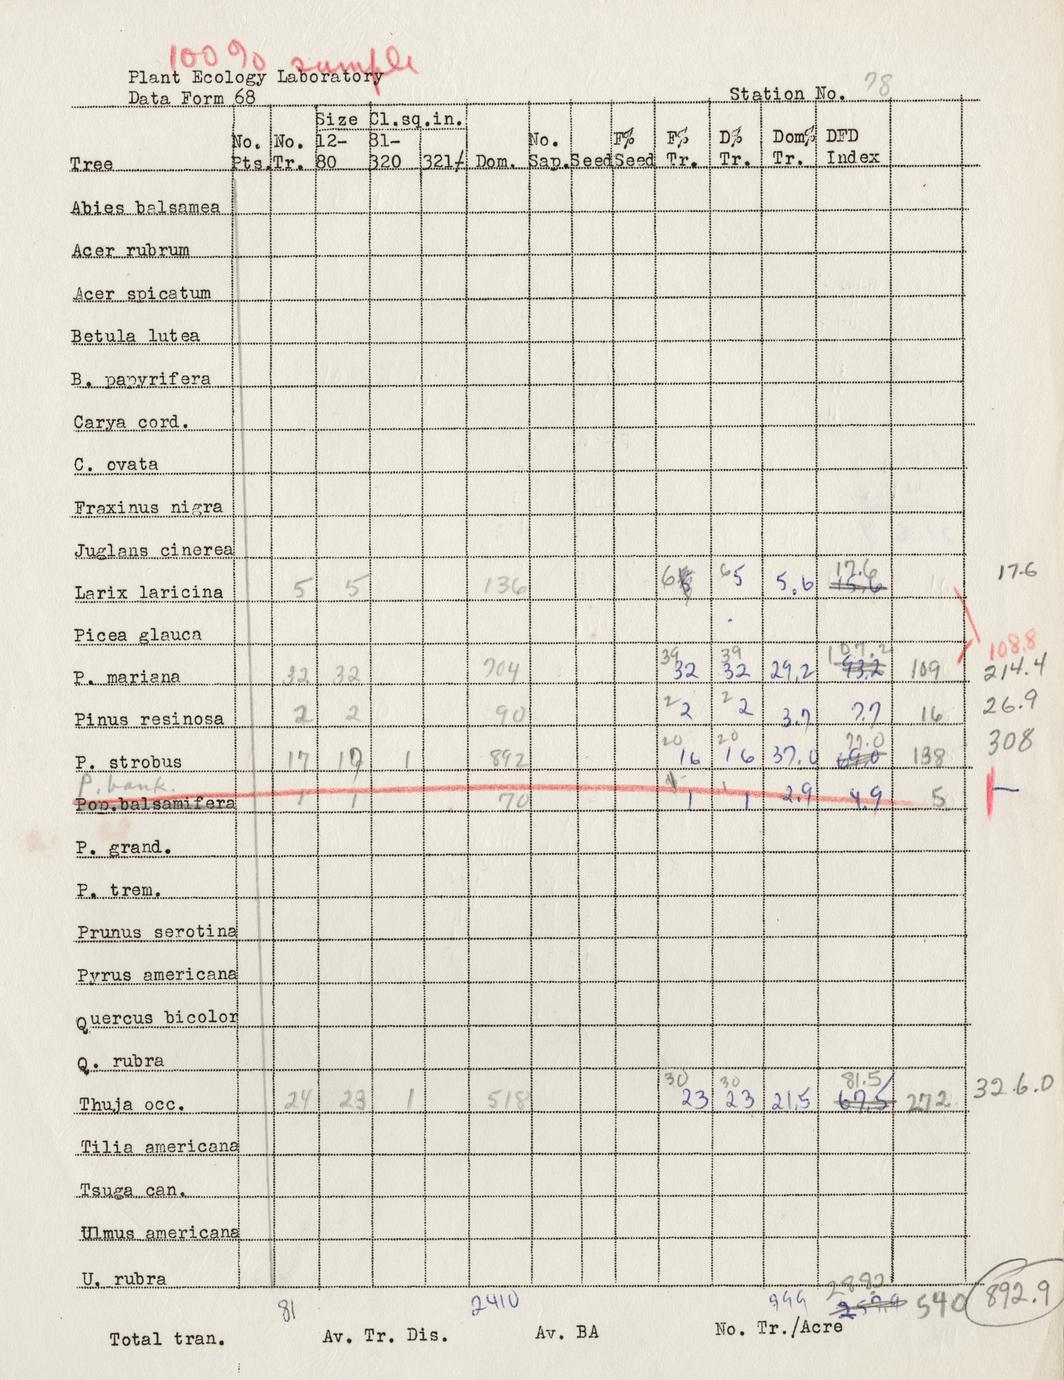 100% sample
Plant Ecology Laboratory
Data Form 68
Station No. 78
Size Cl.sq.in.
No. No. 12- 81- No. F% F% D% Dom% DFD
Tree Pts. Tr. 80 320 321+ Dom. Sap. Seed Seed Tr. Tr. Tr. Index
Abies balsamea
Acer rubrum
Acer spicatum
Betula lutea
B. papyrifera
Carya cord.
C. ovata
Fraxinus nigra
Juglans cinerea
17.6 17.6
Larix laricina 5 5 136 6 6 5 5.6 15.6
Picea glauca
108.8
39 39 107.2
P. mariana 32 32 704 32 32 29.2 93.2 109 214.4
Pinus resinosa 2 2 90 2 2 2 2 3.7 7.7 16 26.9
20 20 77.0
P. strobus 17 17 1 892 16 16 37.0 69.0 138 308
P. bank.
Pop.balsamifera 1 1 70 1 1 1 2.9 4.9 5
P. grand.
P. trem.
Prunus serotina
Pyrus americana
Quercus bicolor
Q. rubra
30 30 81.5
Thuja occ. 24 23 1 518 23 23 21.5 67.5 272 326.0
Tilia americana
Tsuga can.
Ulmus americana
U. rubra
81 2410 999 540 892.9
Total tran. Av. Tr. Dis. Av. BA No. Tr./Acre